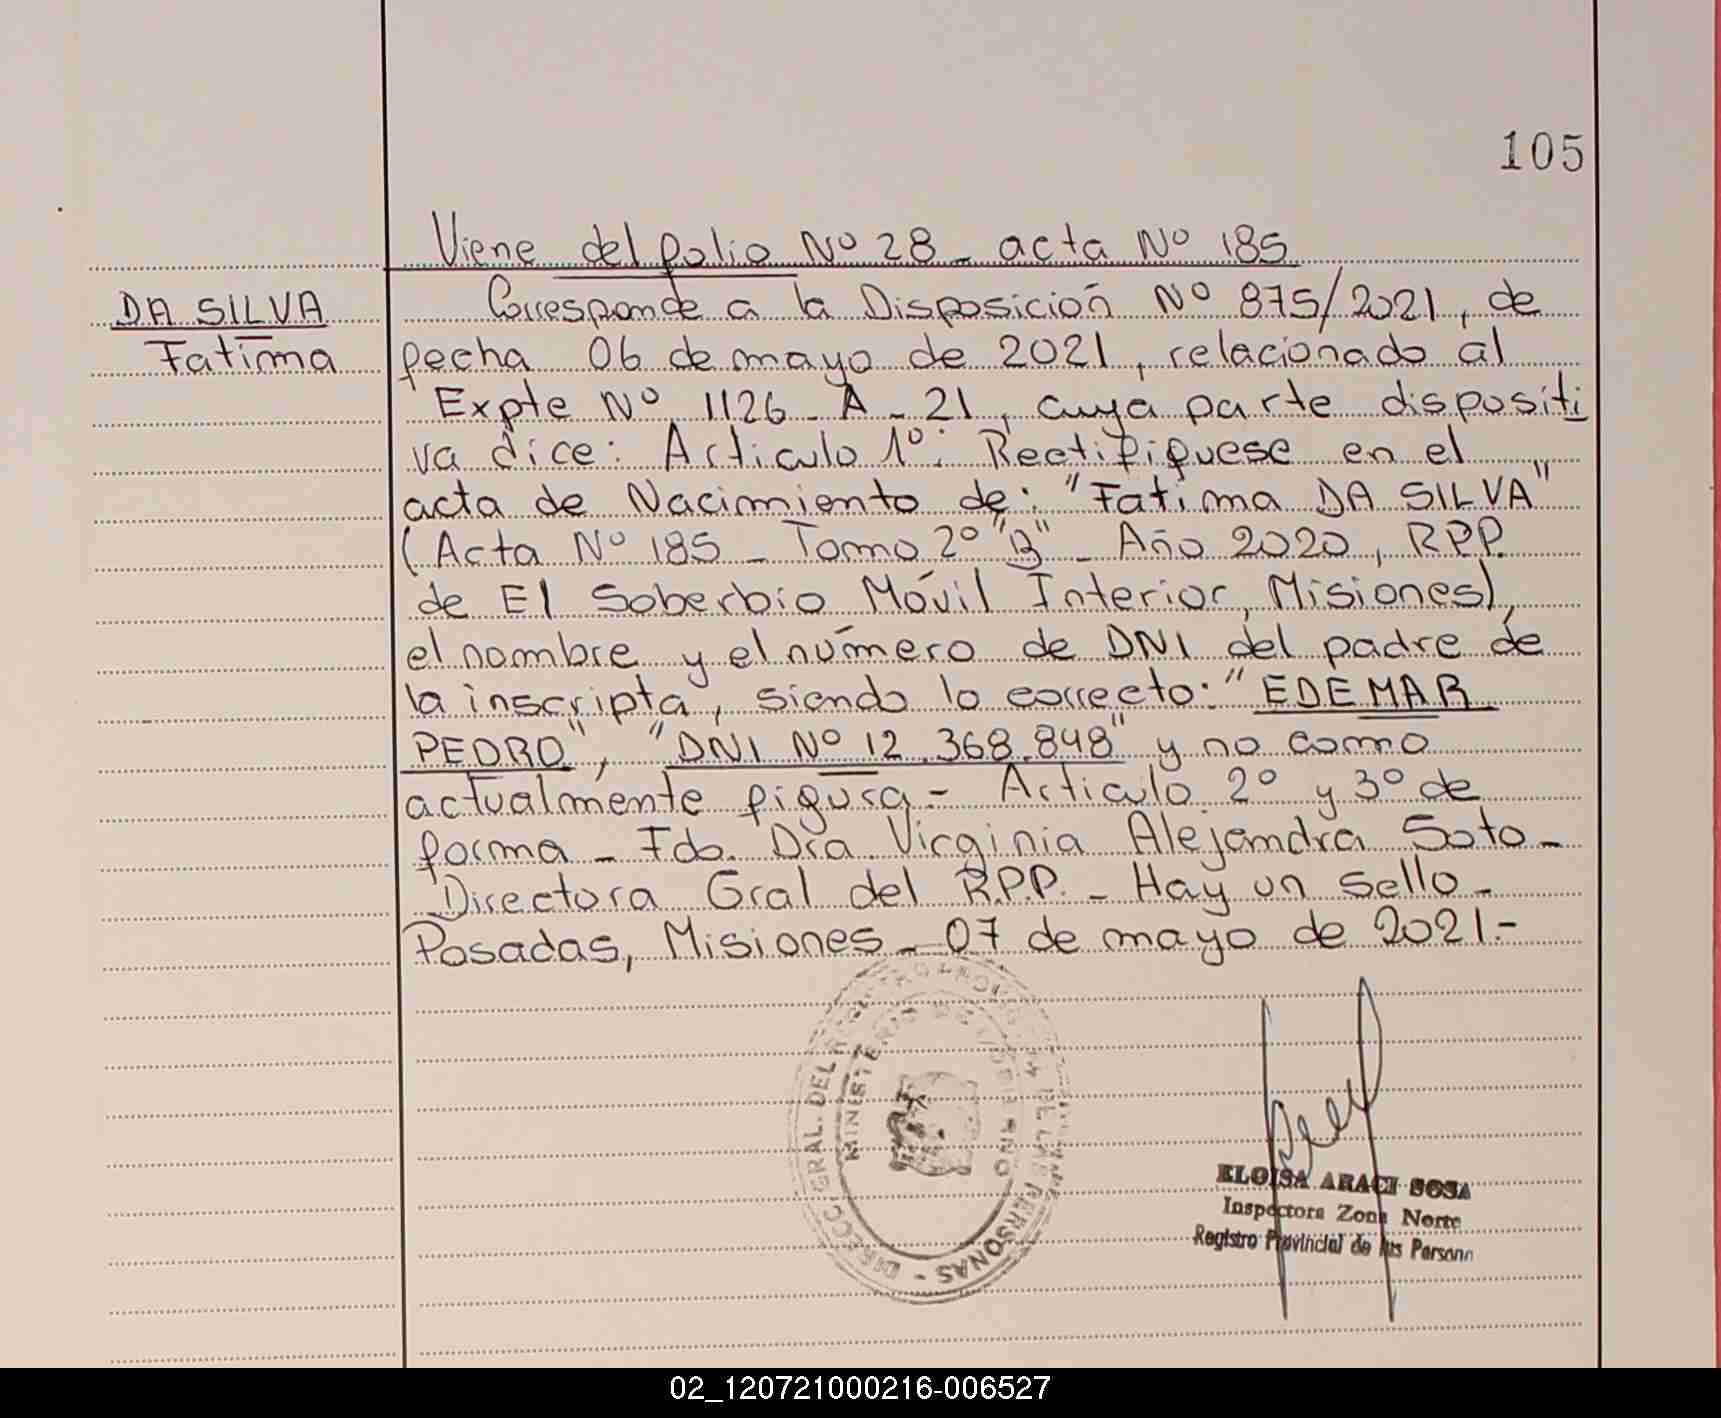 105
Viene del folio Nº 28 - acta Nº 185
DA SILVA
Fatima
Corresponde a la Disposición Nº 875/2021, de
fecha 06 de mayo de 2021, relacionado al
Expte Nº 1126 - A - 21, cuya parte dispositi
va dice: Articulo 1º: Rectifiquese en el
acta de Nacimiento de: "Fatima DA SILVA"
(Acta Nº 185 - Tomo 2º "B" - Año 2020, RPP.
de El Soberbio Móvil Interior, Misiones),
el nombre y el número de DNI del padre de
la inscripta, siendo lo correcto: "EDEMAR
PEDRO", "DNI Nº 12.368.848" y no como
actualmente figura - Articulo 2º y 3º de
forma - Fdo. Dra Virginia Alejandra Soto -
Directora Gral del R.P.P. - Hay un sello -
Posadas, Misiones - 07 de mayo de 2021.-
DIRECC. GRAL. DEL REGISTRO PROVINCIAL DE LAS PERSONAS -
MINISTERIO DE GOBIERNO
ELOISA ARACI SOSA
Inspectora Zona Norte
Registro Provincial de las Persona
02_120721000216-006527